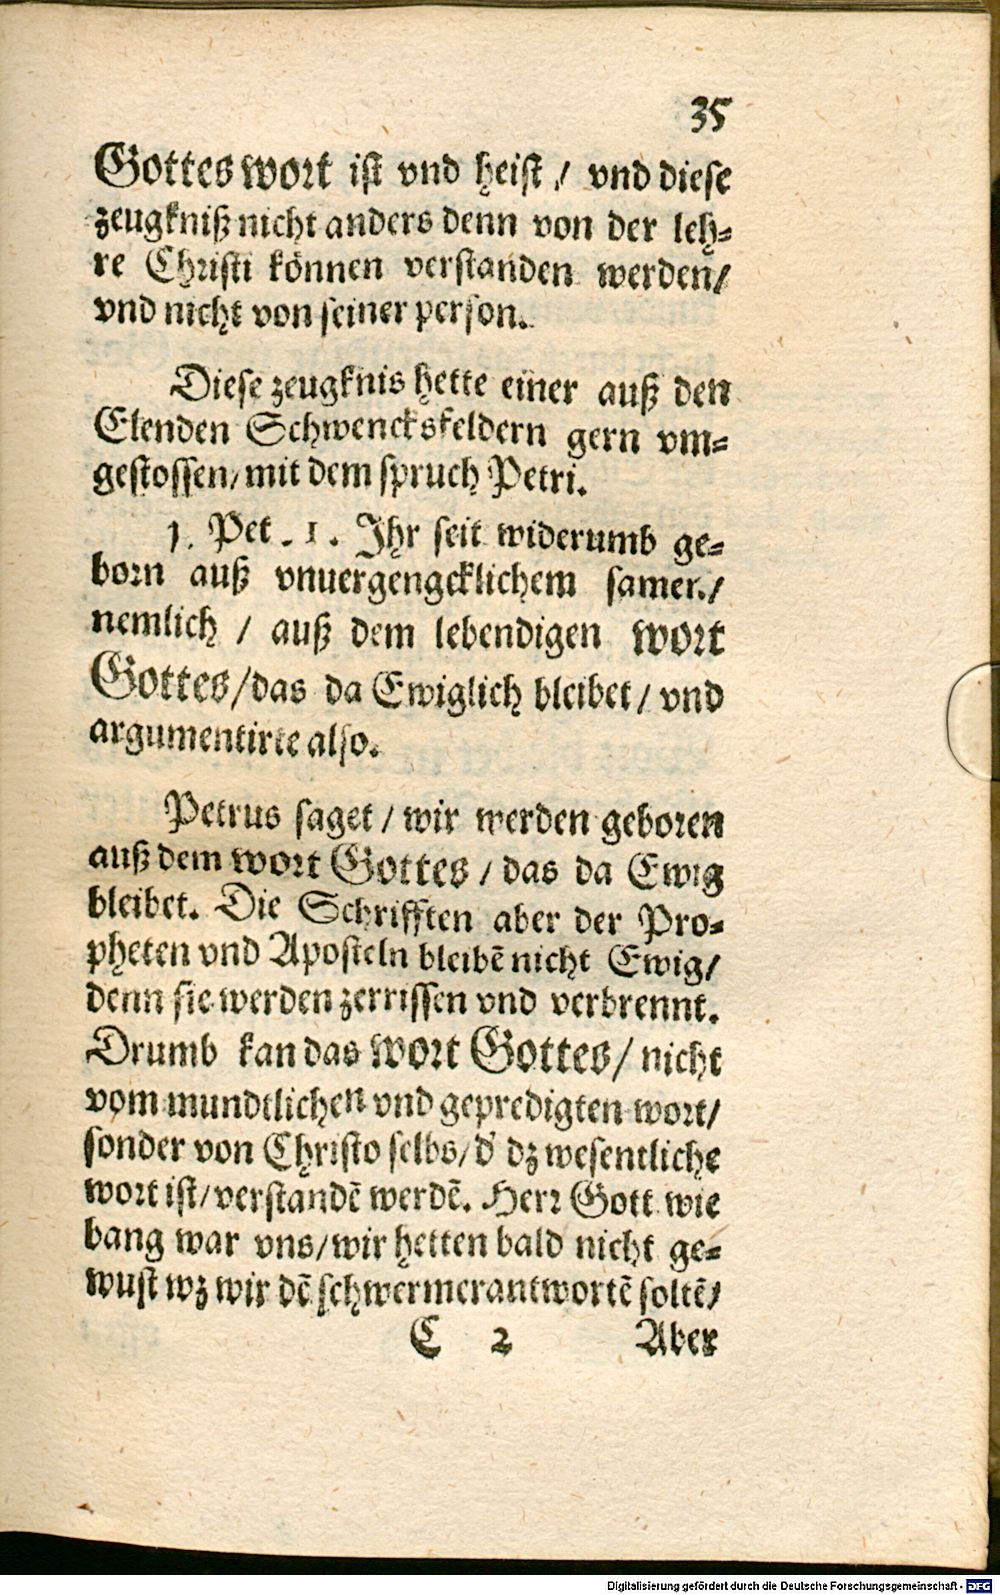 35
Gottes wort ist vnd heist / vnd diese
zeugkniß nicht anders denn von der leh⸗
re Christi können verstanden werden/
vnd nicht von seiner person.
Diese zeugknis hette einer auß den
Elenden Schwencksfeldern gern vm⸗
gestossen/ mit dem spruch Petri.
1. Pet. 1. Ihr seit widerumb ge⸗
born auß vnuergengcklichem samen/
nemlich / auß dem lebendigen wort
Gottes/das da Ewiglich bleibet/ vnd
argumentirte also.
Petrus saget / wir werden geboren
auß dem wort Gottes / das da Ewig
bleibet. Die Schrifften aber der Pro⸗
pheten vnd Aposteln bleibē nicht Ewig/
denn sie werden zerrissen vnd verbrennt.
Drumb kan das wort Gottes/ nicht
vom mundtlichen vnd gepredigten wort/
sonder von Christo selbs/ d' dz wesentliche
wort ist/ verstandē werdē. Herr Gott wie
bang war vns/wir hetten bald nicht ge⸗
wust wz wir dē schwermer antwortē soltē/
C 2 Aber
Digitalisierung gefördert durch die Deutsche Forschungsgemeinschaft - DFG